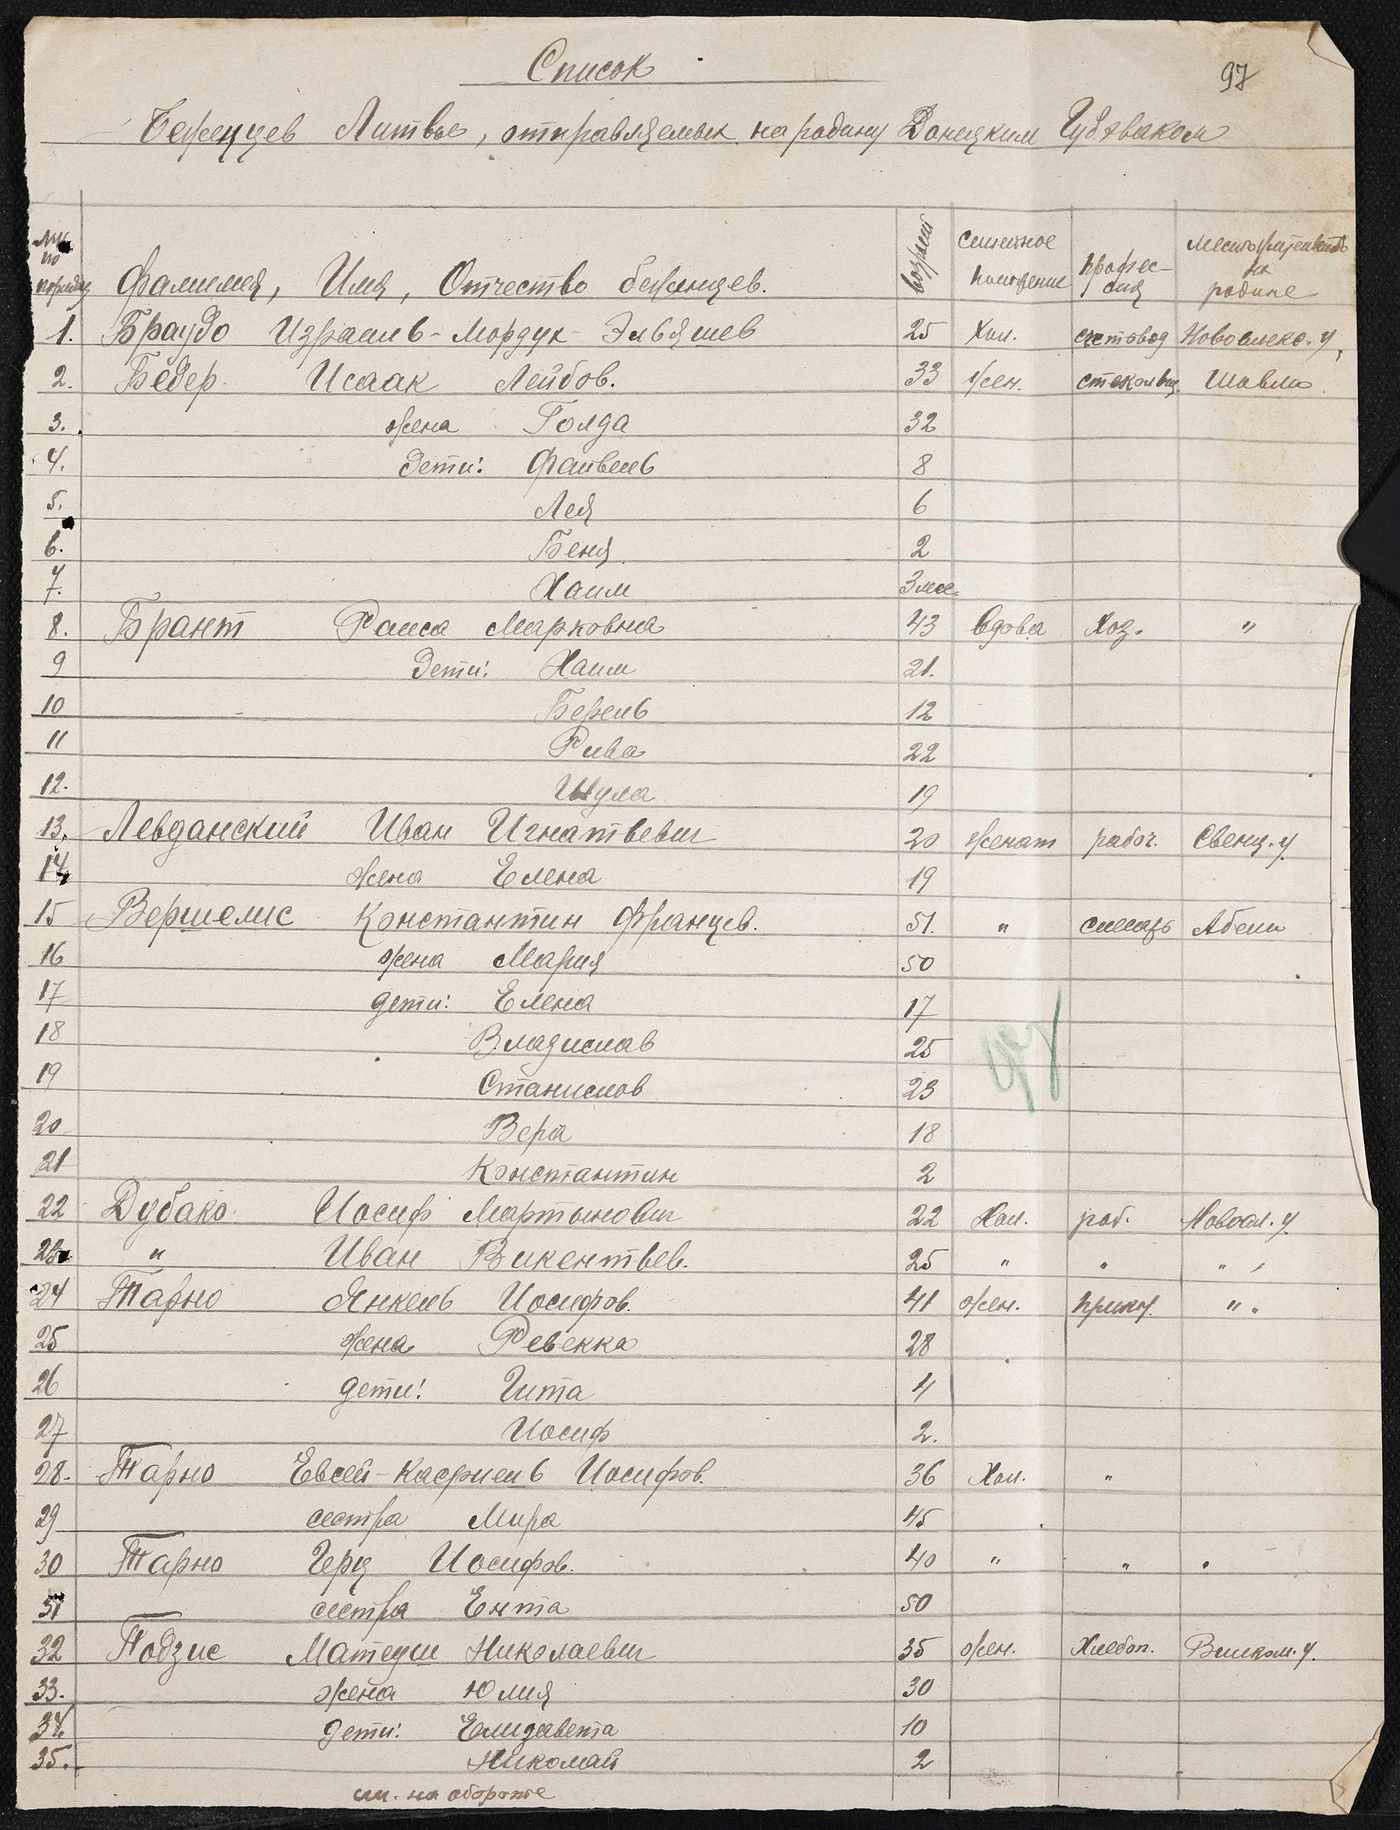 Список
97
Беженцев Литвы, отправляемых на родину Донецким Губэваком
№№ по порядку Фамилия, Имя, Отчество беженцев. возраст семейное положение профессия местожительство на родине
1. Браудо Израиль-Мордух-Эльяшев 25 Хол. счетовод Новоалекс. у,
2. Бедер Исаак Лейбов. 33 жен. стекольщ. Шавли
3. жена Голда 32
4. дети: Файвель 8
5. Лея 6
6. Беня 2
7. Хаим 3 мес.
8. Брант Раиса Марковна 43 вдова Хоз. "
9 дети: Хаим 21.
10 Берель 12
11 Рива 22
12. Шула 19
13. Левданский Иван Игнатьевич 20 женат рабоч. Свенц. у.
14, жена Елена 19
15 Вершелис Константин Францев. 51. " слесарь Абели
16 жена Мария 50
17 дети: Елена 17
18 Владислав 25
19 Станислов 23
20 Вера 18
21 Константин 2
97
22 Дубако Иосиф Мартынович 22 Хол. раб. Новоал. у.
23 " Иван Викентьев. 25 " " "
24 Тарно Янкель Иосифов. 41 жен. прикач. " "
25 жена Ревекка 28
26 дети: Гита 4
27 Иосиф 2.
28. Тарно Евсей-Касриель Иосифов. 36 Хол. "
29 сестра Мира 45
30 Тарно Герц Иосифов. 40 " " "
31 сестра Ента 50
32 Подзис Матеуш Николаевич 35 жен. Хлебоп. Вилком. у.
33. жена Юлия 30
34, дети: Елизавета 10
35. Николай 2
см. на обороте